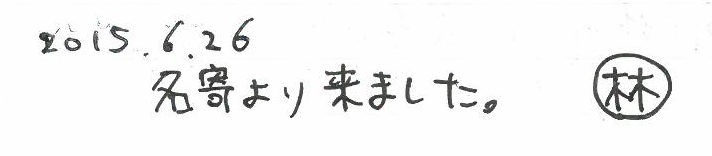 2015.6.26
名寄より来ました。 林